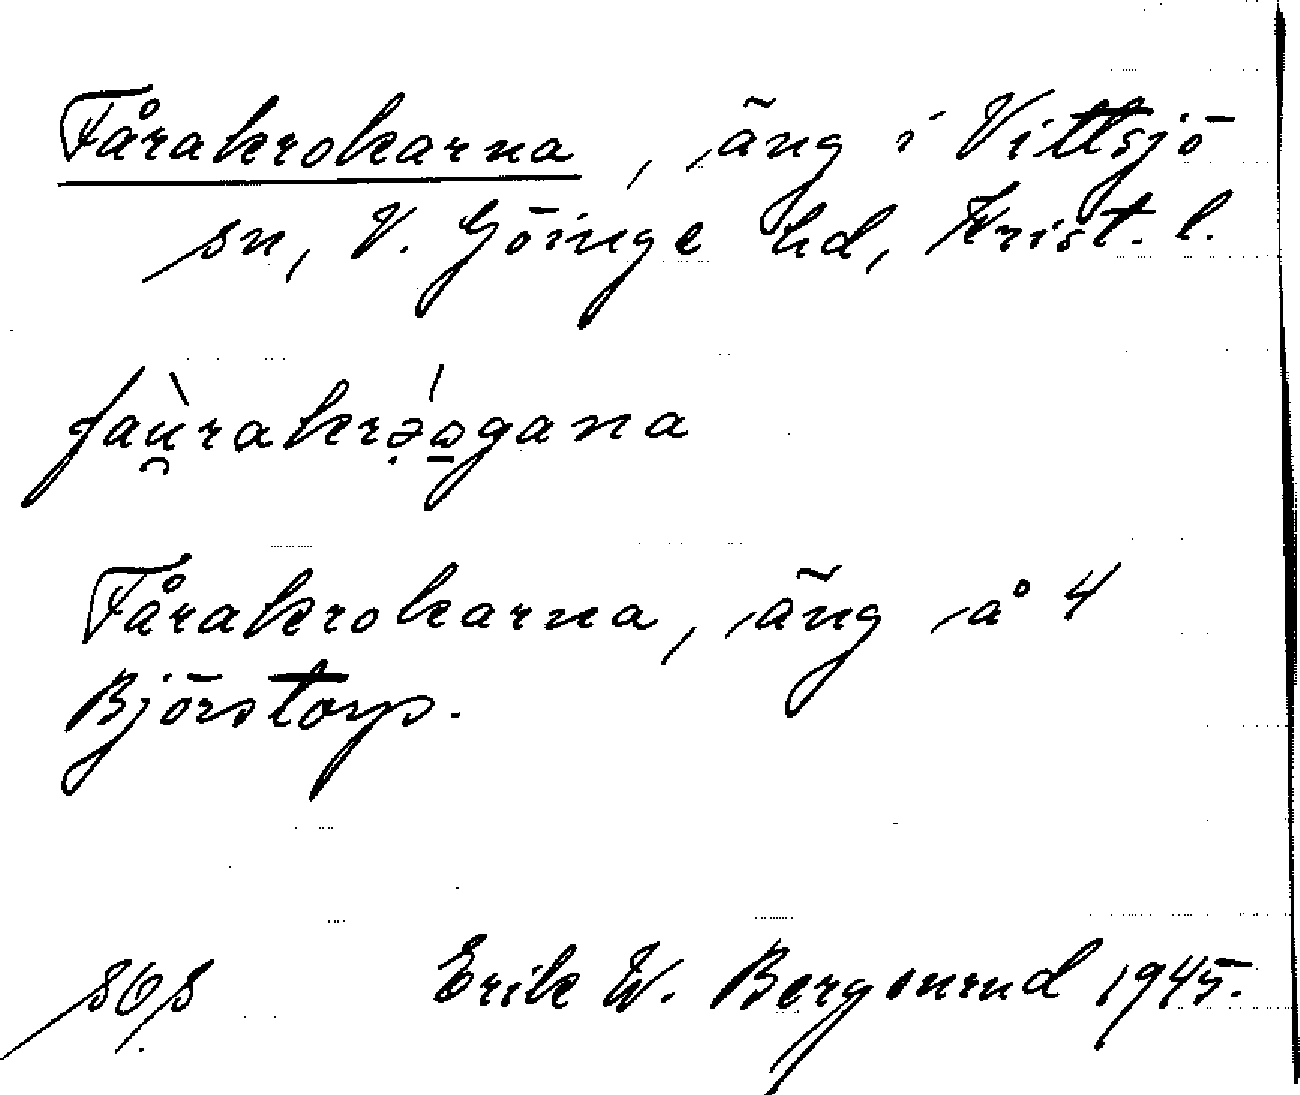 Fårakrokarna, äng i Vittsjö
sn, V. Göinge hd, Krist. l.
faù̯rakrə̣́o̱gana
Fårakrokarna, äng å 4
Björstorp.
Erik W. Bergstrand 1945.